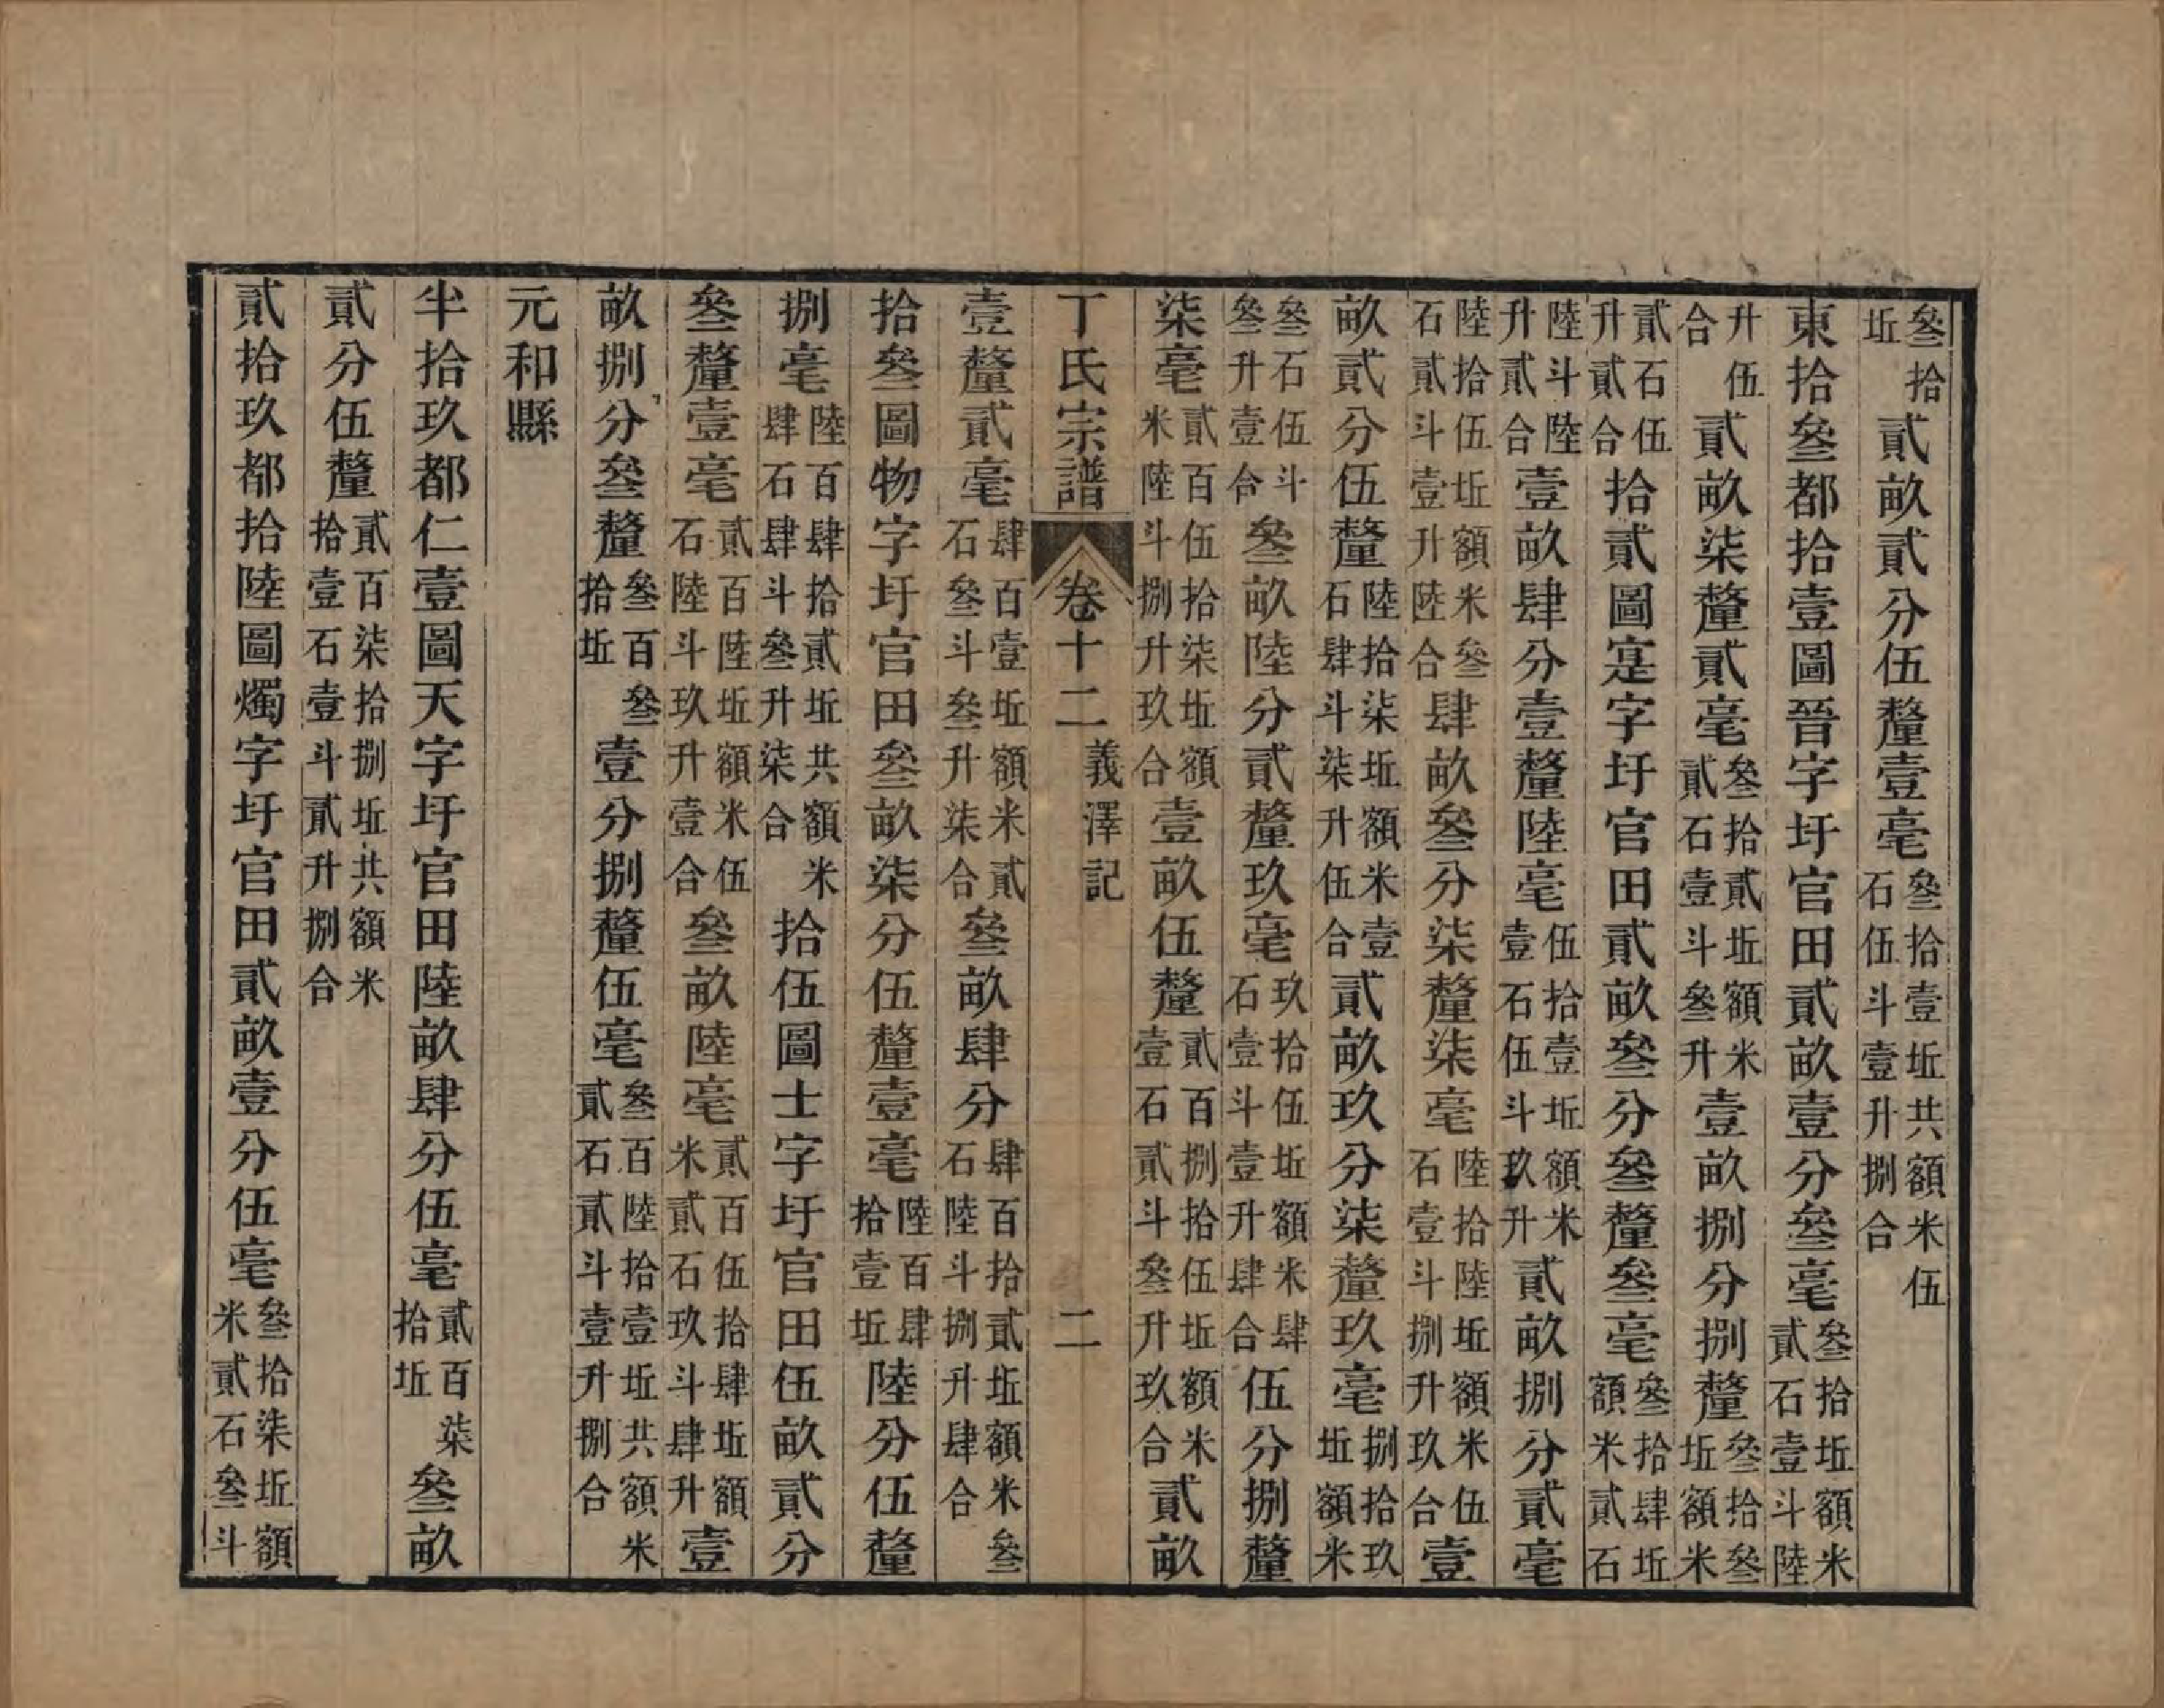 叁拾坵 貳畝貳分伍釐壹毫 叁拾壹坵共額米伍石伍斗壹升捌合
東拾叁都拾壹圖晉字圩官田貳畝壹分叁毫 叁拾坵額米貳石壹斗陸
升伍合 貳畝柒釐貳毫 叁拾貳坵額米貳石壹斗叁升 壹畝捌分捌釐 叁拾叁坵額米
貳石伍升貳合 拾貳圖寔字圩官田貳畝叁分叁釐叁毫 叁拾肆坵額米貳石
陸斗陸升貳合 壹畝肆分壹釐陸毫 伍拾壹坵額米壹石伍斗玖升 貳畝捌分貳毫
陸拾伍坵額米叁石貳斗壹升陸合 肆畝叁分柒釐柒毫 陸拾陸坵額米伍石壹斗捌升玖合 壹
畝貳分伍釐 陸拾柒坵額米壹石肆斗柒升伍合 貳畝玖分柒釐玖毫 捌拾玖坵額米
叁石伍斗叁升壹合 叁畝陸分貳釐玖毫 玖拾伍坵額米肆石壹斗壹升肆合 伍分捌釐
柒毫 貳百伍拾柒坵額米陸斗捌升玖合 壹畝伍釐 貳百捌拾伍坵額米壹石貳斗叁升玖合 貳畝
丁氏宗譜 卷十二 義澤記 二
壹釐貳毫 肆百壹坵額米貳石叁斗叁升柒合 叁畝肆分 肆百拾貳坵額米叁石陸斗捌升肆合
拾叁圖物字圩官田叁畝柒分伍釐壹毫 陸百肆拾壹坵 陸分伍釐
捌毫 陸百肆拾貳坵共額米肆石肆斗叁升柒合 拾伍圖士字圩官田伍畝貳分
叁釐壹毫 貳百陸坵額米伍石陸斗玖升壹合 叁畝陸毫 貳百伍拾肆坵額米貳石玖斗肆升 壹
畝捌分叁釐 叁百叁拾坵 壹分捌釐伍毫 叁百陸拾壹坵共額米貳石貳斗壹升捌合
元和縣
半拾玖都仁壹圖天字圩官田陸畝肆分伍毫 貳百柒拾坵 叁畝
貳分伍釐 貳百柒拾捌坵共額米拾壹石壹斗貳升捌合
貳拾玖都拾陸圖燭字圩官田貳畝壹分伍毫 叁拾柒坵額米貳石叁斗